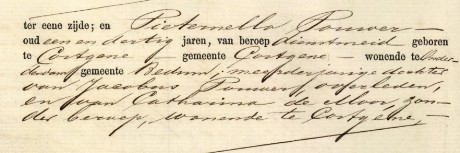 ter eene zijde; en Pieternella Pouwer —
oud een en dertig jaren, van beroep dienstmeid geboren
te Cortgene — gemeente Cortgene — wonende te Onder
dendam gemeente Bedum; meerderjarige dochter
van Jacobus Pouwer, overleden,
en van Catharina de Moor, zon-
der beroep, wonende te Cortgene, —